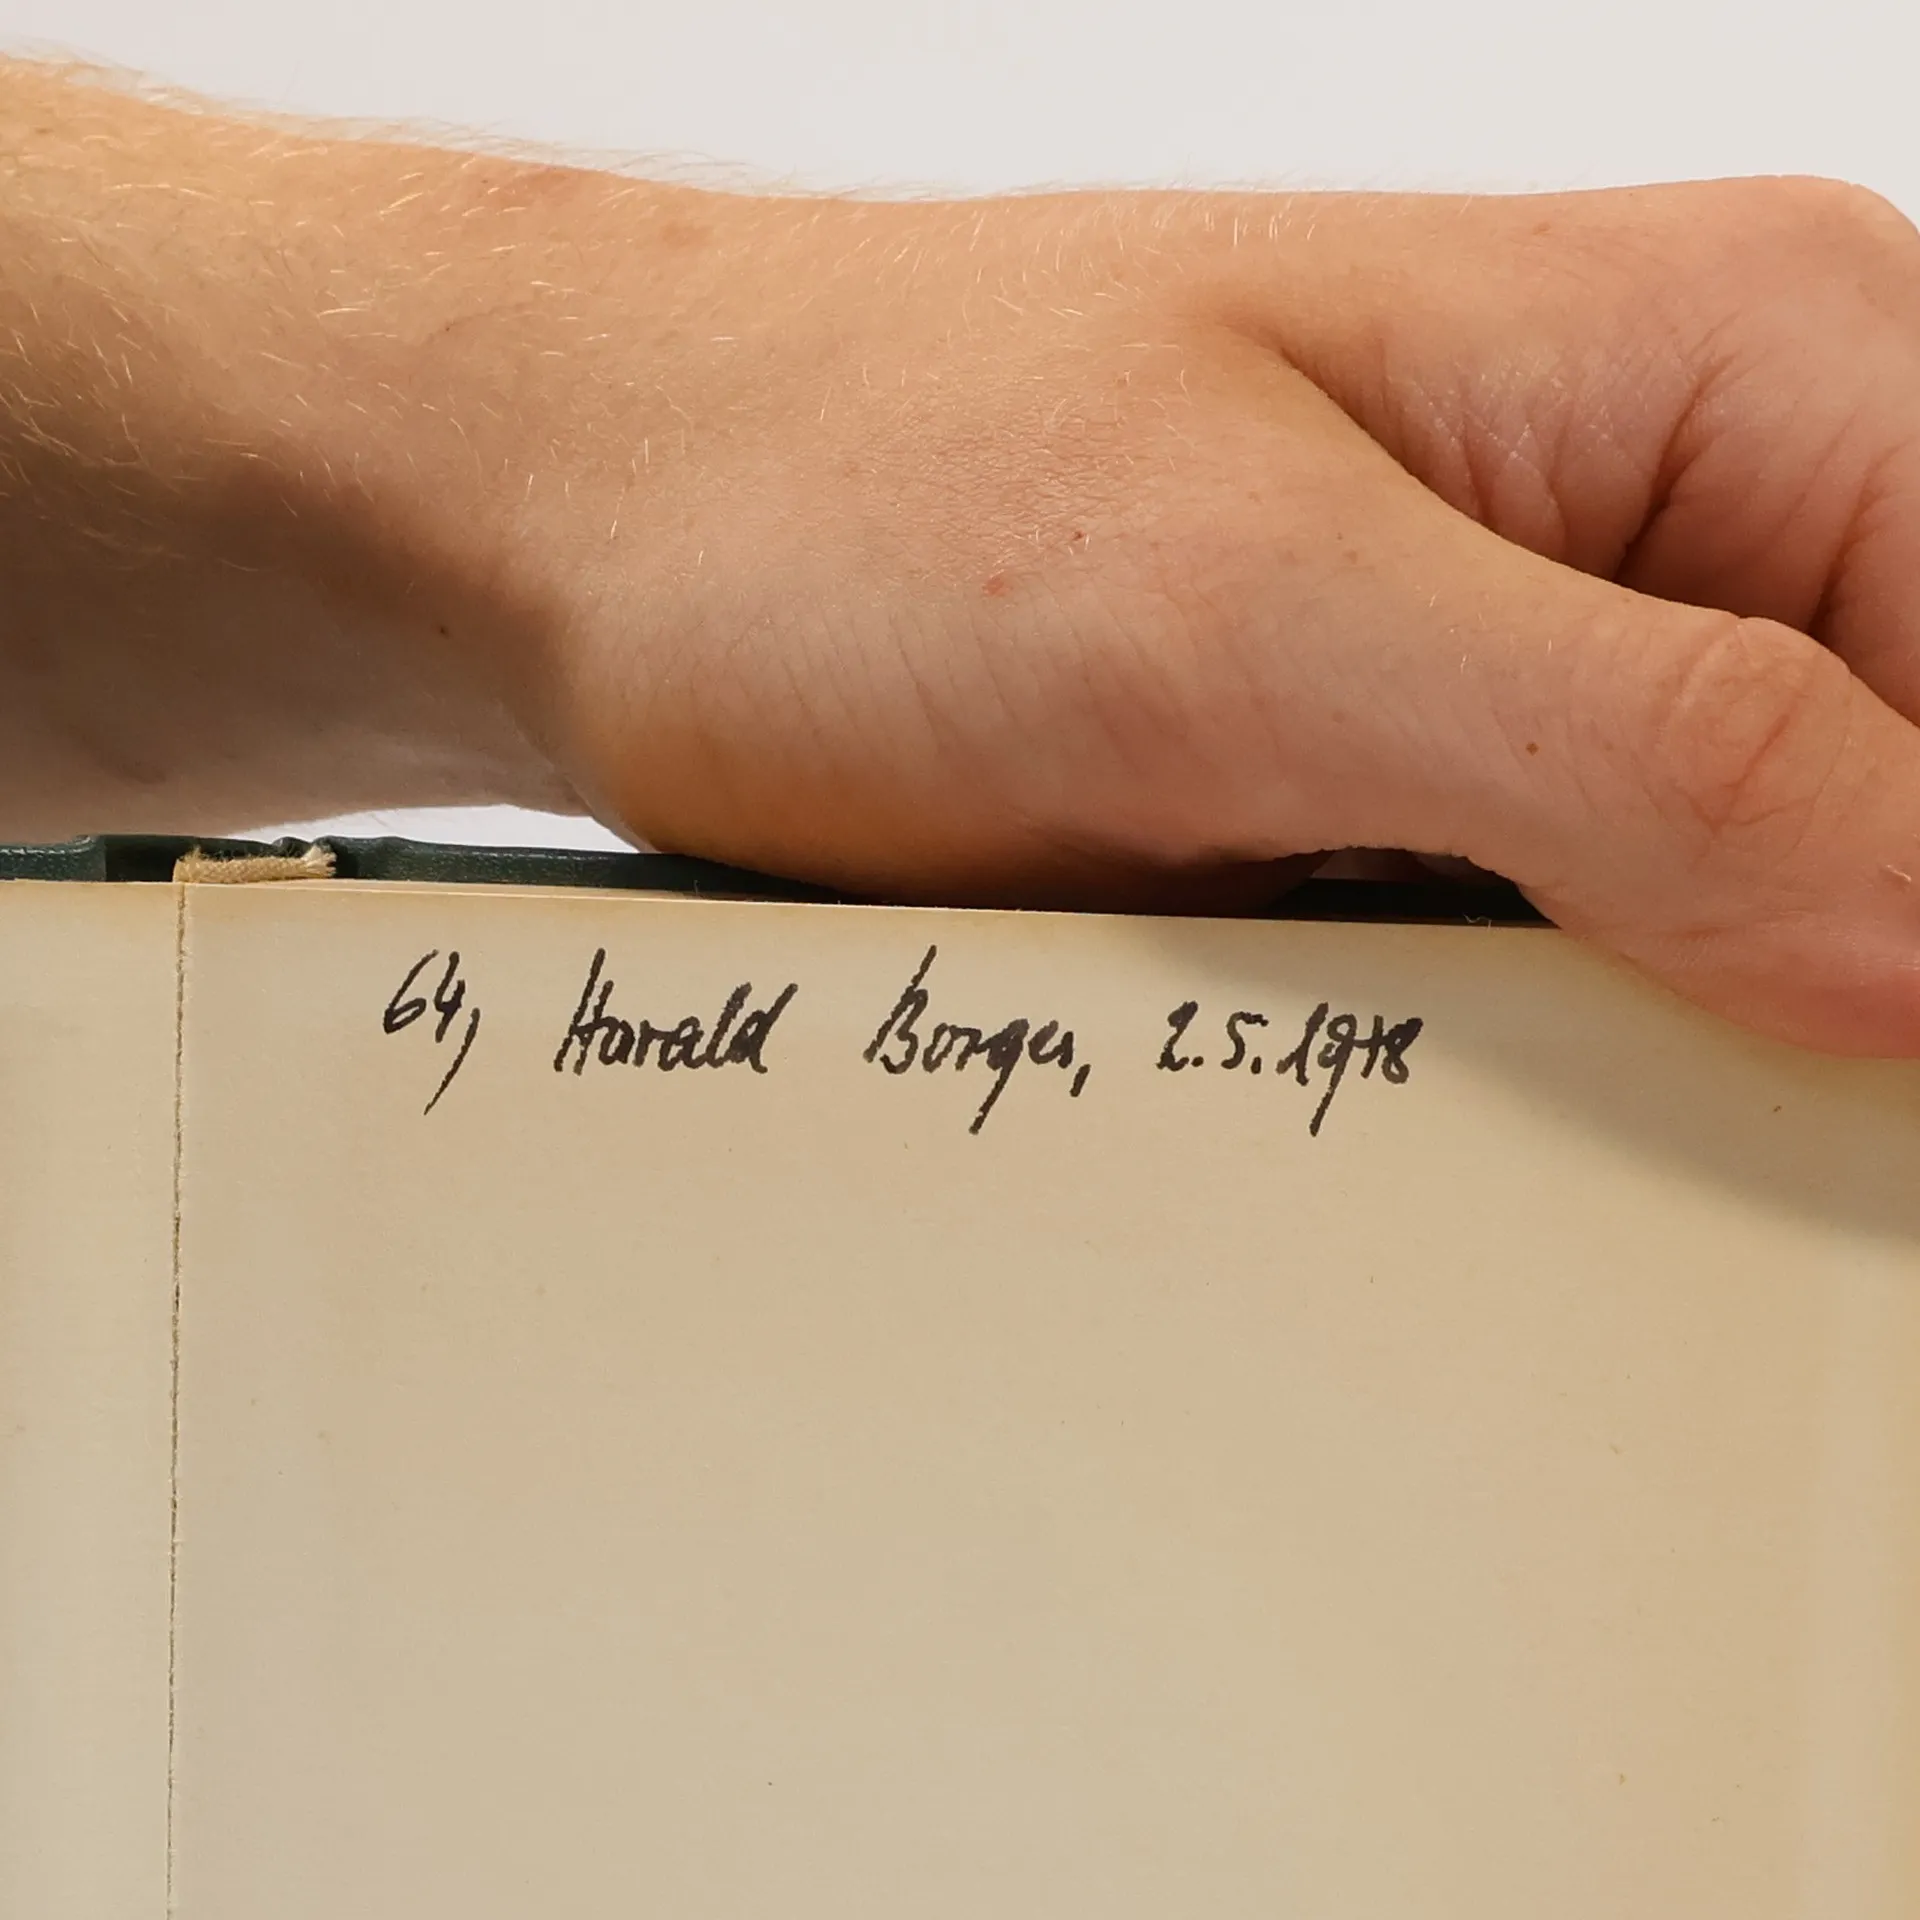 64, Harald Borges, 2.5.1978